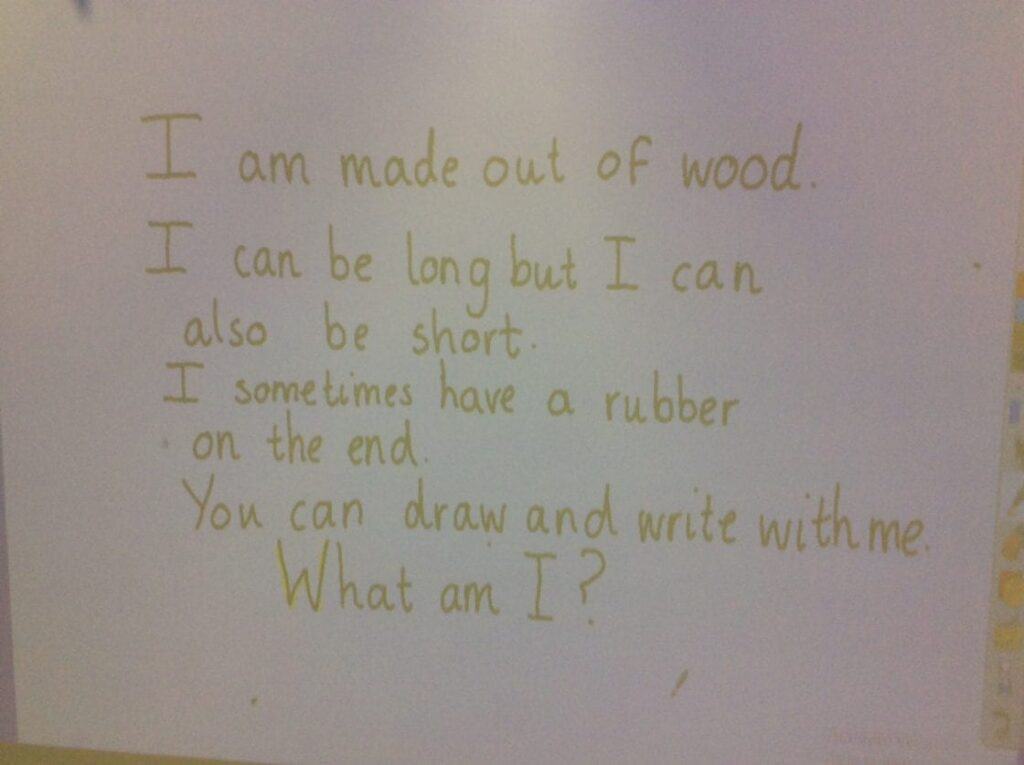 I am made out of wood.
I can be long but I can
also be short.
I sometimes have a rubber
on the end.
You can draw and write with me.
What am I?